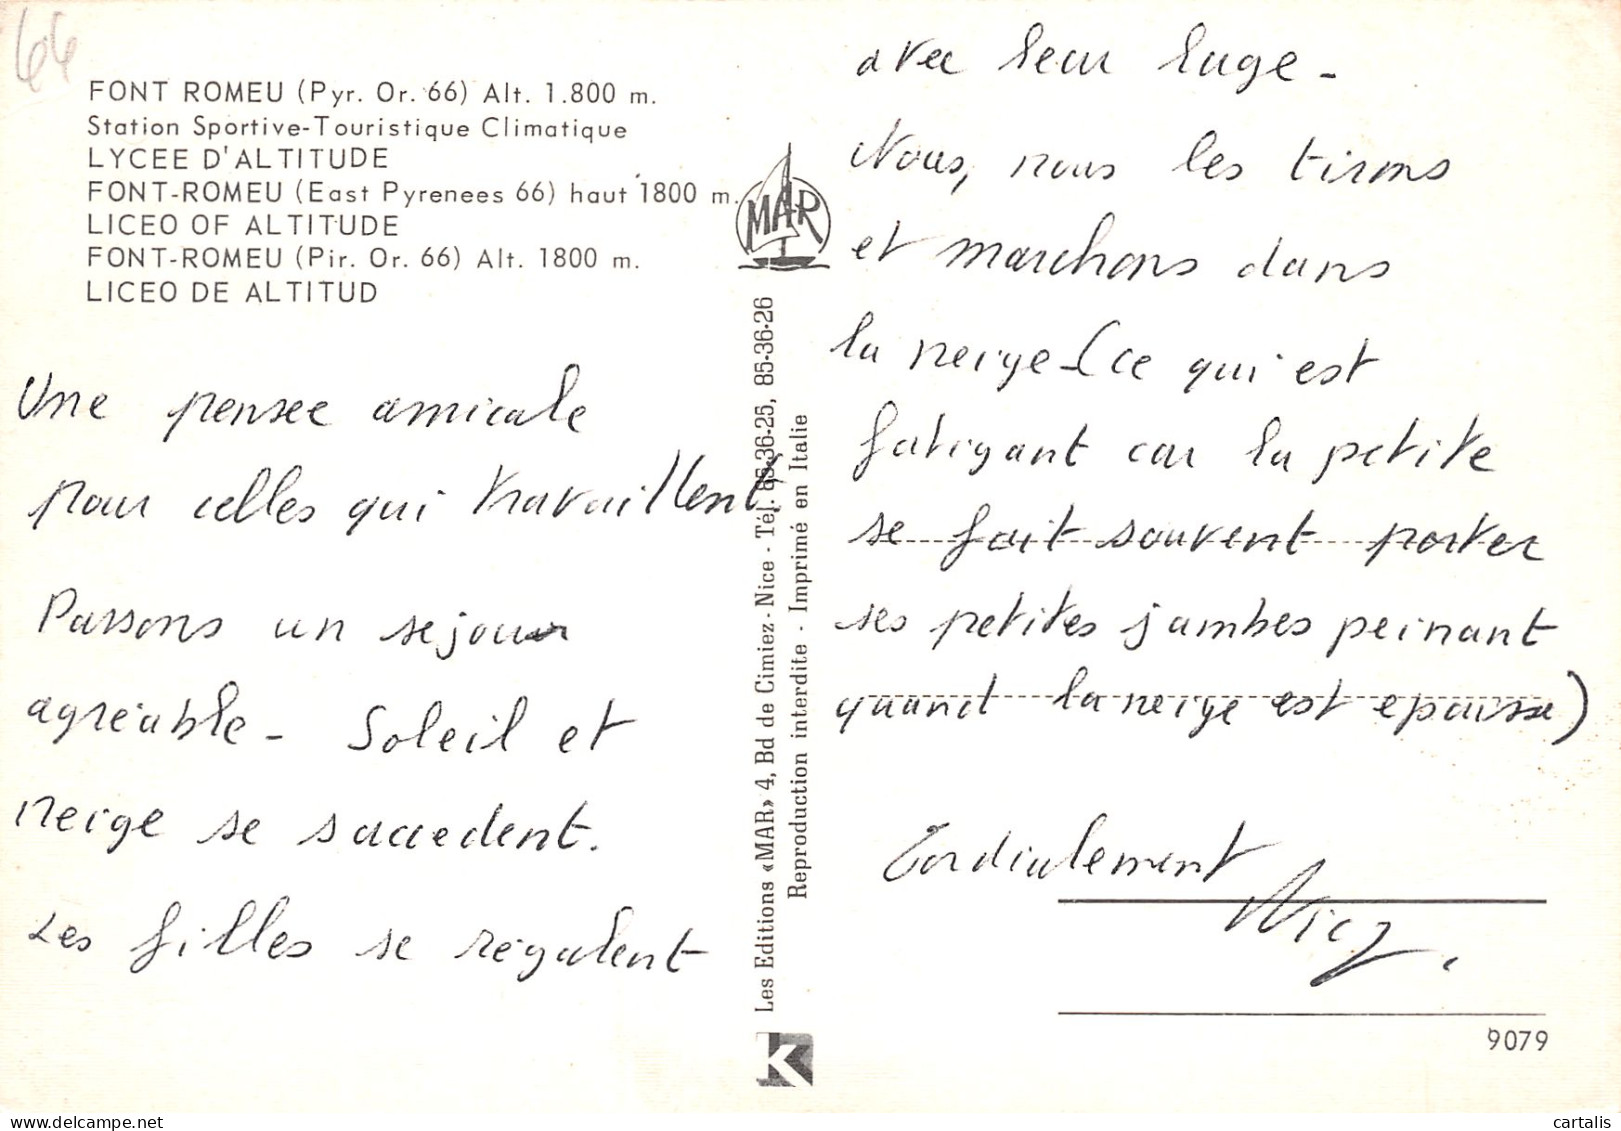 66
FONT ROMEU (Pyr. Or. 66) Alt. 1.800 m.
Station Sportive-Touristique Climatique
LYCEE D'ALTITUDE
FONT-ROMEU (East Pyrenees 66) haut 1800 m.
LICEO OF ALTITUDE
FONT-ROMEU (Pir. Or. 66) Alt. 1800 m.
LICEO DE ALTITUD
Une pensee amicale
pour celles qui travaillent.
Passons un sejour
agréable - Soleil et
neige se succedent.
Les filles se régalent
MAR
Les Editions «MAR» 4, Bd de Cimiez - Nice - Tél. 85-36-25, 85-36-26
Reproduction interdite - Imprimé en Italie
K
avec leur luge -
Nous, nous les tirons
et marchons dans
la neige - (ce qui est
fatigant car la petite
se fait souvent porter
ses petites jambes peinant
quand la neige est epaisse)
Cordialement
9079
cartalis.com